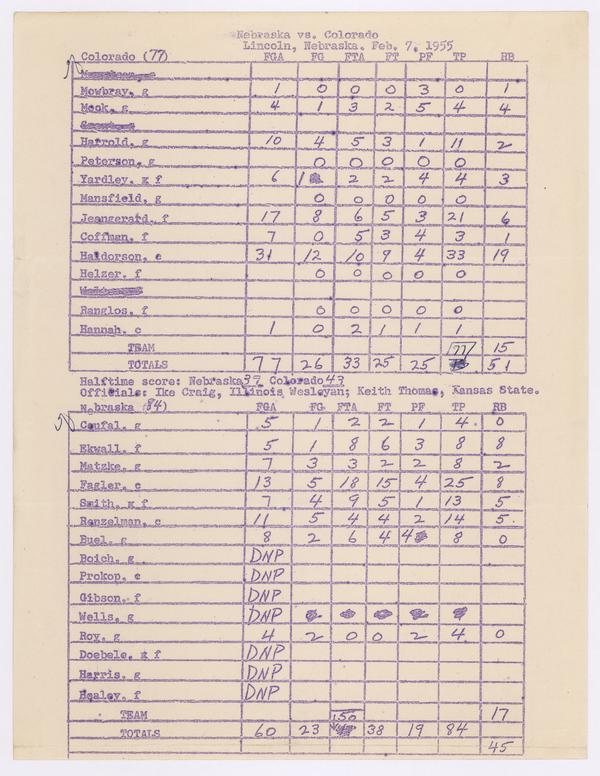 Nebraska vs. Colorado
Lincoln, Nebraska. Feb. 7, 1955
Colorado (77) FGA FG FTA FT PF TP RB
Mowbray, g 1 0 0 0 3 0 1
Mock, g 4 1 3 2 5 4 4
Harrold, g 10 4 5 3 1 11 2
Peterson, g 0 0 0 0 0
Yardley, g f 6 1 2 2 4 4 3
Mansfield, g 0 0 0 0 0
Jeangerard, f 17 8 6 5 3 21 6
Coffman, f 7 0 5 3 4 3 1
Haldorson, c 31 12 10 9 4 33 19
Helzer, f 0 0 0 0 0
Ranglos, f 0 0 0 0 0
Hannah, c 1 0 2 1 1 1
TEAM 77 15
TOTALS 77 26 33 25 25 51
Halftime score: Nebraska 37 Colorado 43
Officials: Ike Craig, Illinois Wesleyan; Keith Thomas, Kansas State.
Nebraska (84) FGA FG FTA FT PF TP RB
Coufal, g 5 1 2 2 1 4 0
Ekwall, f 5 1 8 6 3 8 8
Matzke, g 7 3 3 2 2 8 2
Fagler, c 13 5 18 15 4 25 8
Smith, g f 7 4 9 5 1 13 5
Renzelman, c 11 5 4 4 2 14 5
Buel, g 8 2 6 4 4 8 0
Boich, g DNP
Prokop, c DNP
Gibson, f DNP
Wells, g DNP
Roy, g 4 2 0 0 2 4 0
Doebele, g f DNP
Harris, g DNP
Healey, f DNP
TEAM 50 17
TOTALS 60 23 38 19 84
45